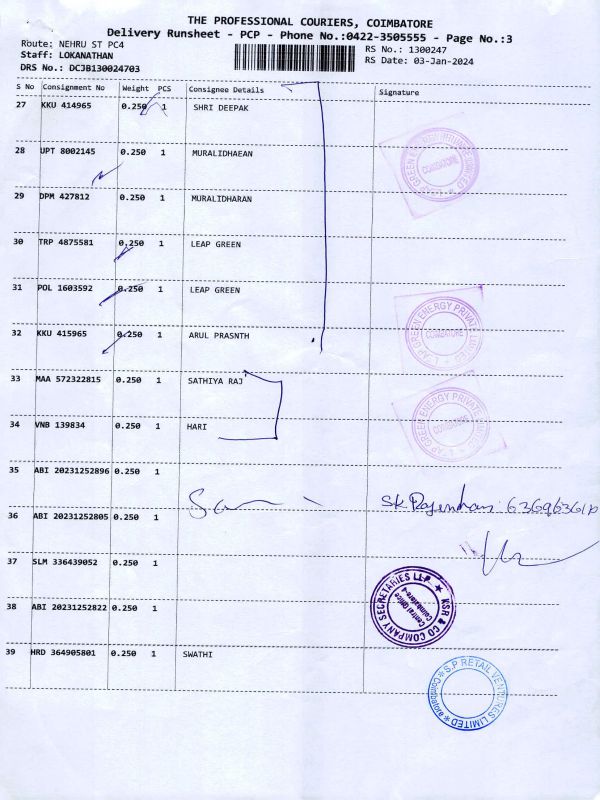 THE PROFESSIONAL COURIERS, COIMBATORE
Delivery Runsheet - PCP - Phone No.:0422-3505555 - Page No.:3
Route: NEHRU ST PC4
RS No.: 1300247
Staff: LOKANATHAN
RS Date: 03-Jan-2024
DRS No.: DCJB130024703
S No Consignment No Weight PCS Consignee Details Signature
27 KKU 414965 0.250 1 SHRI DEEPAK
28 UPT 8002145 0.250 1 MURALIDHAEAN
COIMBATORE
29 DPM 427812 0.250 1 MURALIDHARAN
30 TRP 4875581 0.250 1 LEAP GREEN
31 POL 1603592 0.250 1 LEAP GREEN
LEAP GREEN ENERGY PRIVATE LIMITED
COIMBATORE
32 KKU 415965 0.250 1 ARUL PRASNTH
33 MAA 572322815 0.250 1 SATHIYA RAJ
LEAP GREEN ENERGY PRIVATE LIMITED
COIMBATORE
34 VNB 139834 0.250 1 HARI
35 ABI 20231252896 0.250 1
36 ABI 20231252805 0.250 1
37 SLM 336439052 0.250 1
KSR & CO COMPANY SECRETARIES LLP
Central Office
Coimbatore-4
38 ABI 20231252822 0.250 1
39 HRD 364905801 0.250 1 SWATHI
S.P RETAIL VENTURES LIMITED
Coimbatore